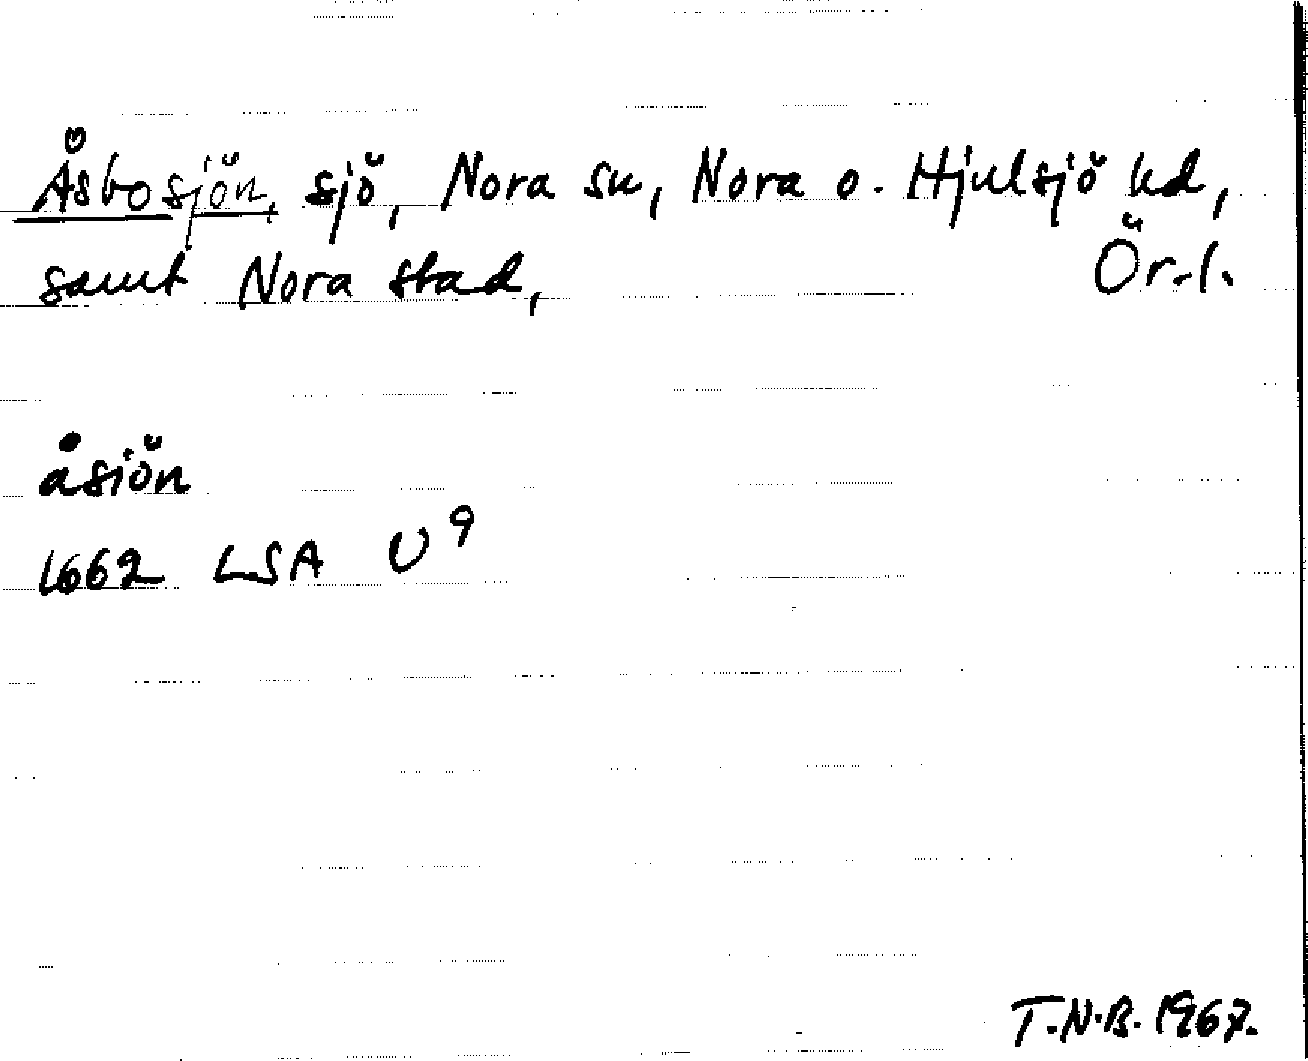 Åsbosjön, sjö, Nora sn, Nora o. Hjulsjö hd,
samt Nora stad, Ör. l.
åsiön
1662 LSA U 9
T.N.B. 1967.